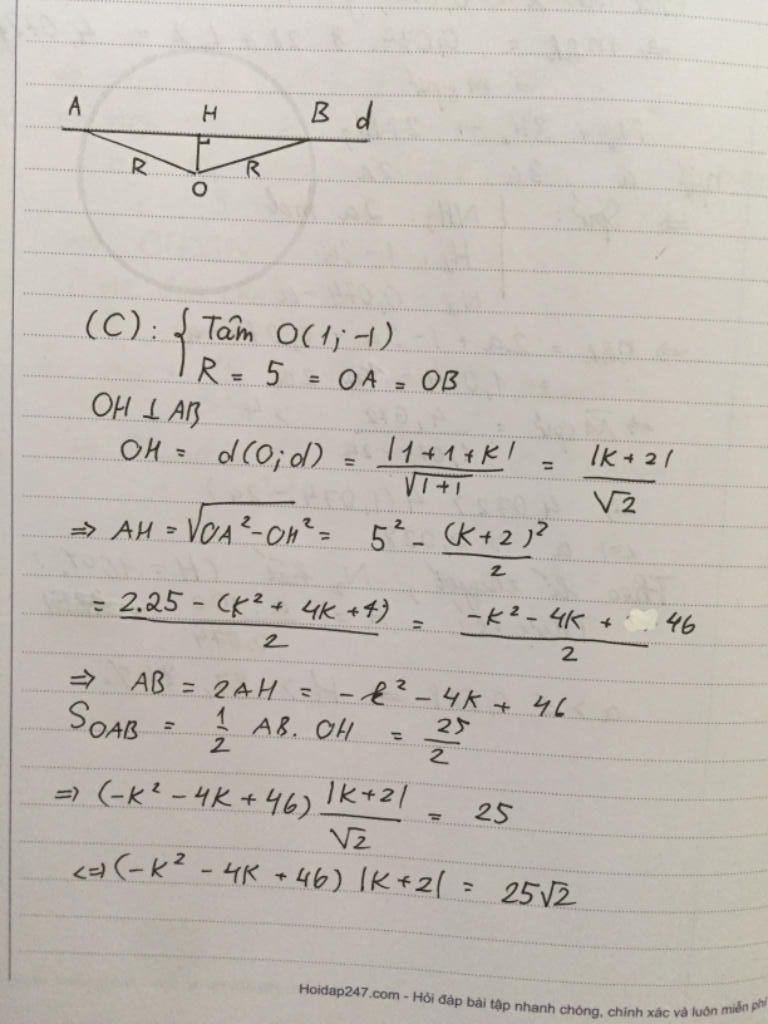 A H B d
R R
O
(C): { Tâm O(1;-1)
R = 5 = OA = OB
OH ⊥ AB
OH = d(O;d) = |1+1+K| / √1+1 = |K+2| / √2
⇒ AH = √OA²-OH² = 5² - (K+2)² / 2
= 2.25 - (K² + 4K + 4) / 2 = -K² - 4K + 46 / 2
⇒ AB = 2AH = -k² - 4K + 46
S OAB = 1/2 AB. OH = 25/2
⇒ (-K² - 4K + 46) |K+2| / √2 = 25
<=> (-K² - 4K + 46) |K+2| = 25√2
Hoidap247.com - Hỏi đáp bài tập nhanh chóng, chính xác và luôn miễn phí